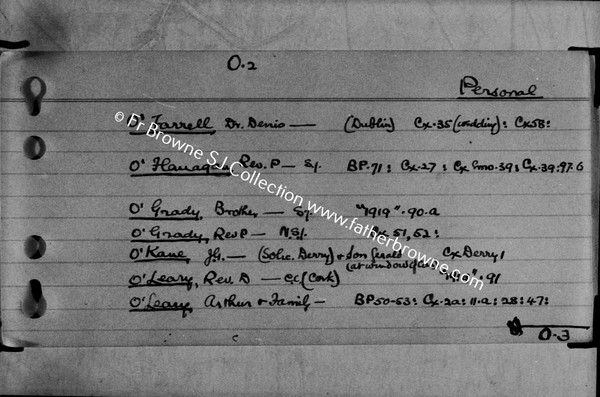 O.2
Personal
O'Farrell Dr. Denis — (Dublin) Cx.35 (wedding): Cx58:
O'Flanagan Rev. P — S.J. BP.71: Cx.27: Cx 39: Cx.39: 97.6
O'Grady, Brother — S.J. "1919".90.a
O'Grady, Rev P — N.S.J. Cx 51, 52:
O'Kane, Jh. — (Solic. Derry) & son Gerald Cx Derry 1
(at window
O'Leary, Rev. D — C.C. (Cork) 91
O'Leary, Arthur & Family — BP50-53: Cx.2a: 11.a: 28: 47:
O.3
© Fr Browne S.J. Collection www.fatherbrowne.com